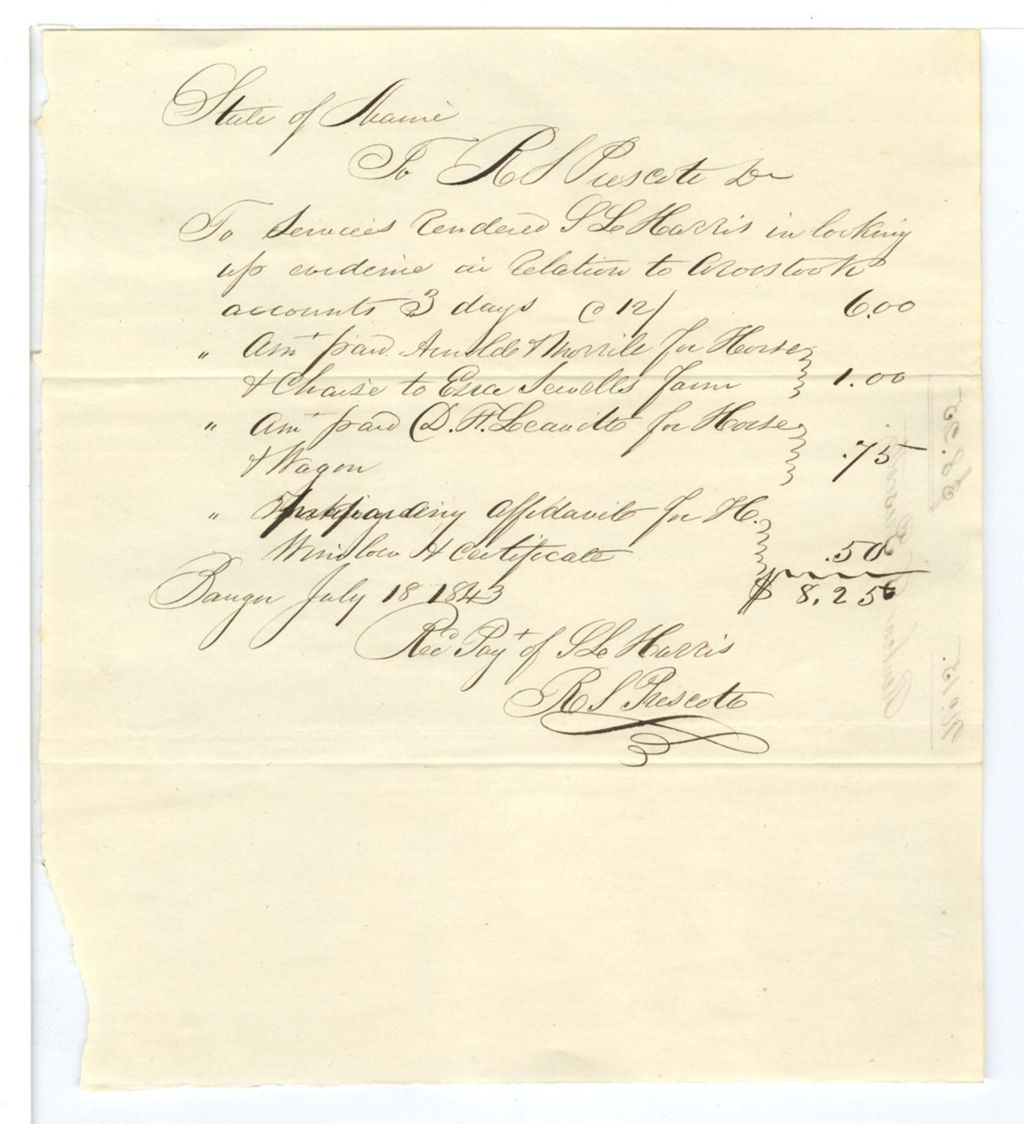 State of Maine
To R S Prescott Dr
To Services rendered S L Harris in looking
up evidence in relation to Aroostook
accounts 3 days @ 12/ 6.00
" Amt paid Arnold & Morrill for Horse
& Chaise to Ezra Sewells farm 1.00
" Amt paid D. H. Leavitt for Horse
& Wagon .75
" affidavit for H.
Winslow & Certificate .50
Bangor July 18 1843 $ 8.25
Recd Payt of S L Harris
R S Prescott